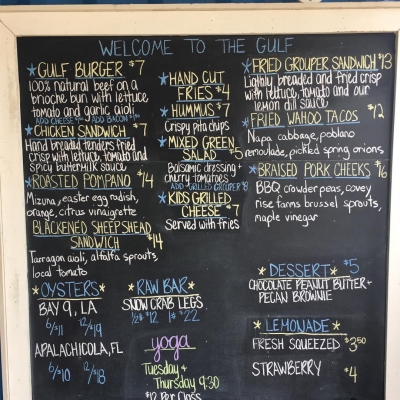 WELCOME TO THE GULF
GULF BURGER $7
100% natural beef on a
brioche bun with lettuce
tomato and garlic aioli
ADD CHEESE ADD BACON
CHICKEN SANDWICH $7
Hand breaded tenders fried
crisp with lettuce, tomato and
spicy buttermilk sauce
ROASTED POMPANO $14
Mizuna, easter egg radish,
orange, citrus vinaigrette
BLACKENED SHEEPSHEAD
SANDWICH $14
Tarragon aioli, alfalfa sprouts,
local tomato
OYSTERS
BAY 9, LA
6/$11 12/$19
APALACHICOLA, FL
6/$10 12/$18
HAND CUT
FRIES $4
HUMMUS $7
Crispy pita chips
MIXED GREEN
SALAD $5
Balsamic dressing +
cherry tomatoes
ADD GRILLED GROUPER $8
KIDS GRILLED
CHEESE $7
Served with fries
RAW BAR
SNOW CRAB LEGS
1/2# $12 1# $22
yoga
Tuesday +
Thursday 9:30
$12 Per Class
FRIED GROUPER SANDWICH $13
Lightly breaded and fried crisp
with lettuce, tomato and our
lemon dill sauce
FRIED WAHOO TACOS $12
Napa cabbage, poblano
remoulade, pickled spring onions
BRAISED PORK CHEEKS $16
BBQ crowder peas, covey
rise farms brussel sprouts,
maple vinegar
DESSERT $5
CHOCOLATE PEANUT BUTTER +
PECAN BROWNIE
LEMONADE
FRESH SQUEEZED $3.50
STRAWBERRY $4